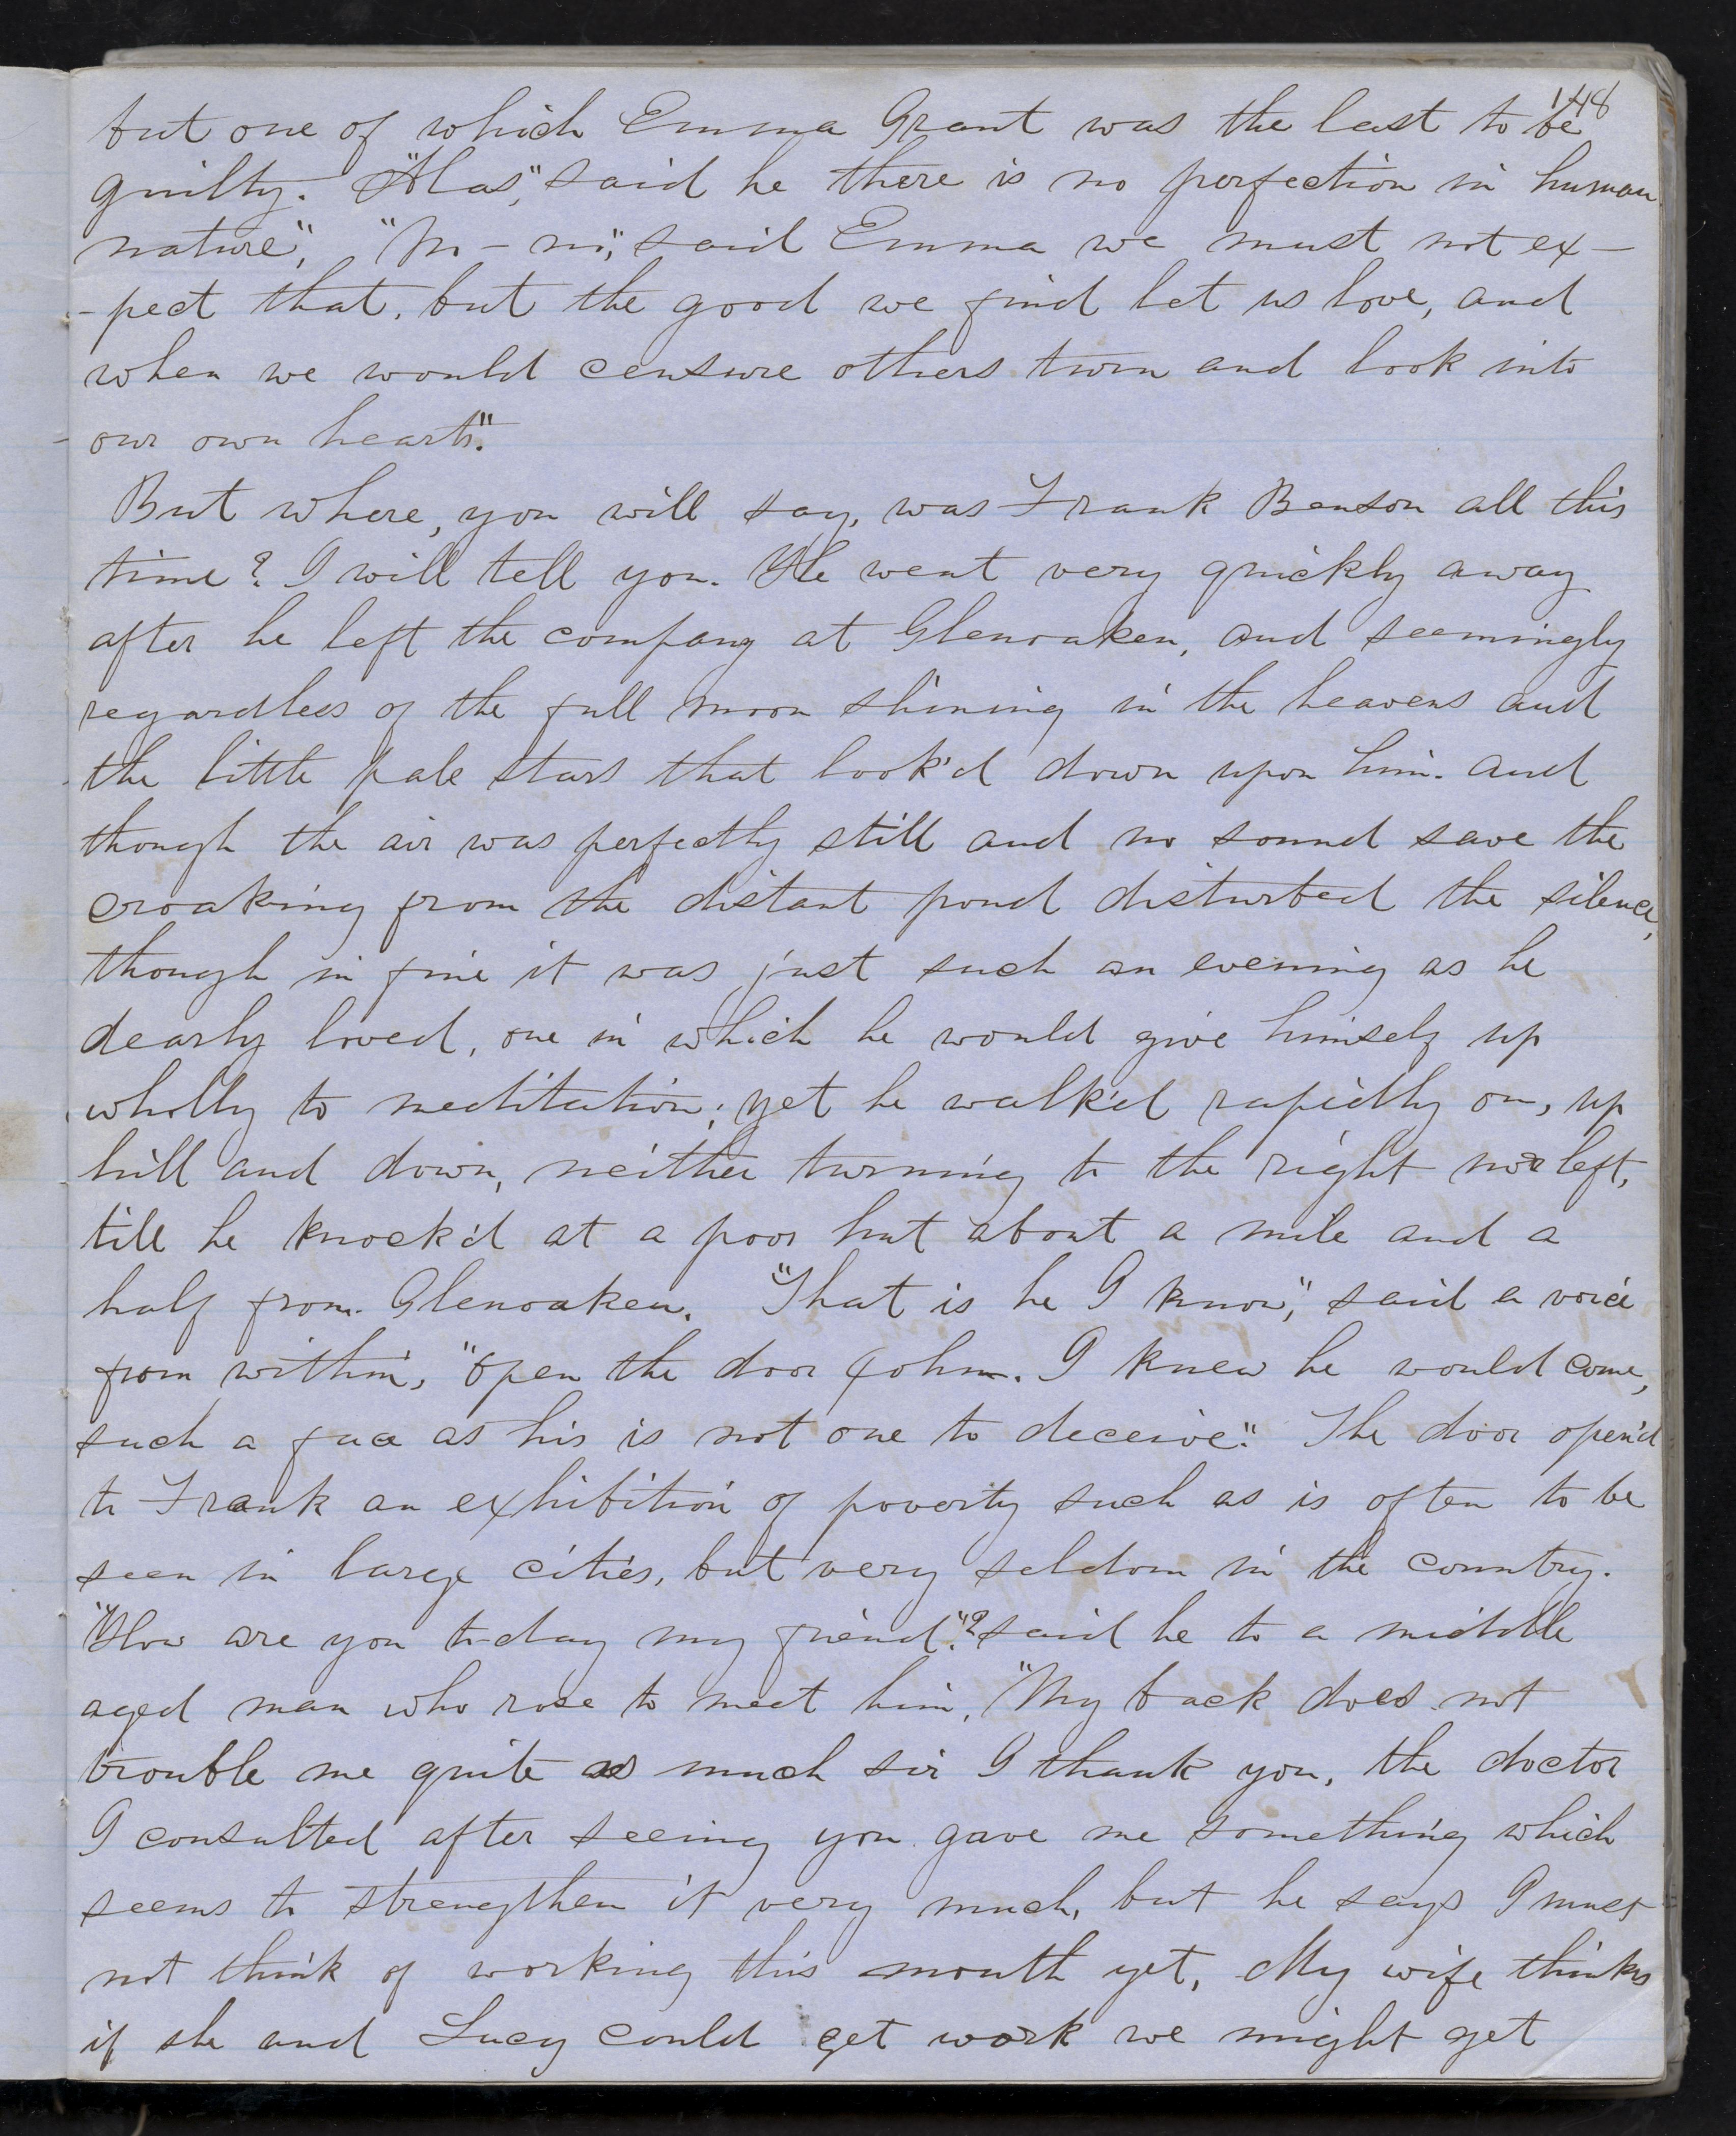 148
but one of which Emma Grant was the last to be
guilty. "Alas," said he there is no perfection in human
nature", "No - no", said Emma we must not ex-
-pect that, but the good we find let us love, and
when we would censure others turn and look into
our own hearts".
But where, you will say, was Frank Benson all this
time? I will tell you. He went very quickly away
after he left the company at Glenoaken, and seemingly
regardless of the full moon shining in the heavens and
the little pale stars that look'd down upon him. and
though the air was perfectly still and no sound save the
croaking from the distant pond disturbed the silence,
though in fine it was just such an evening as he
dearly loved, one in which he would give himself up
wholly to meditation; yet he walk'd rapidly on, up
hill and down, neither turning to the right nor left,
till he knock'd at a poor hut about a mile and a
half from Glenoaken. "That is he I know," said a voice
from within, "open the door John. I knew he would come,
such a face as his is not one to deceive". The door open'd
to Frank an exhibition of poverty such as is often to be
seen in large cities, but very seldom in the country.
"How are you to-day my friend"? said he to a middle
aged man who rose to meet him, "My back does not
trouble me quite as much sir I thank you, the doctor
I consulted after seeing you gave me something which
seems to strengthen it very much, but he says I must
not think of working this month yet, My wife thinks
if she and Lucy could get work we might get